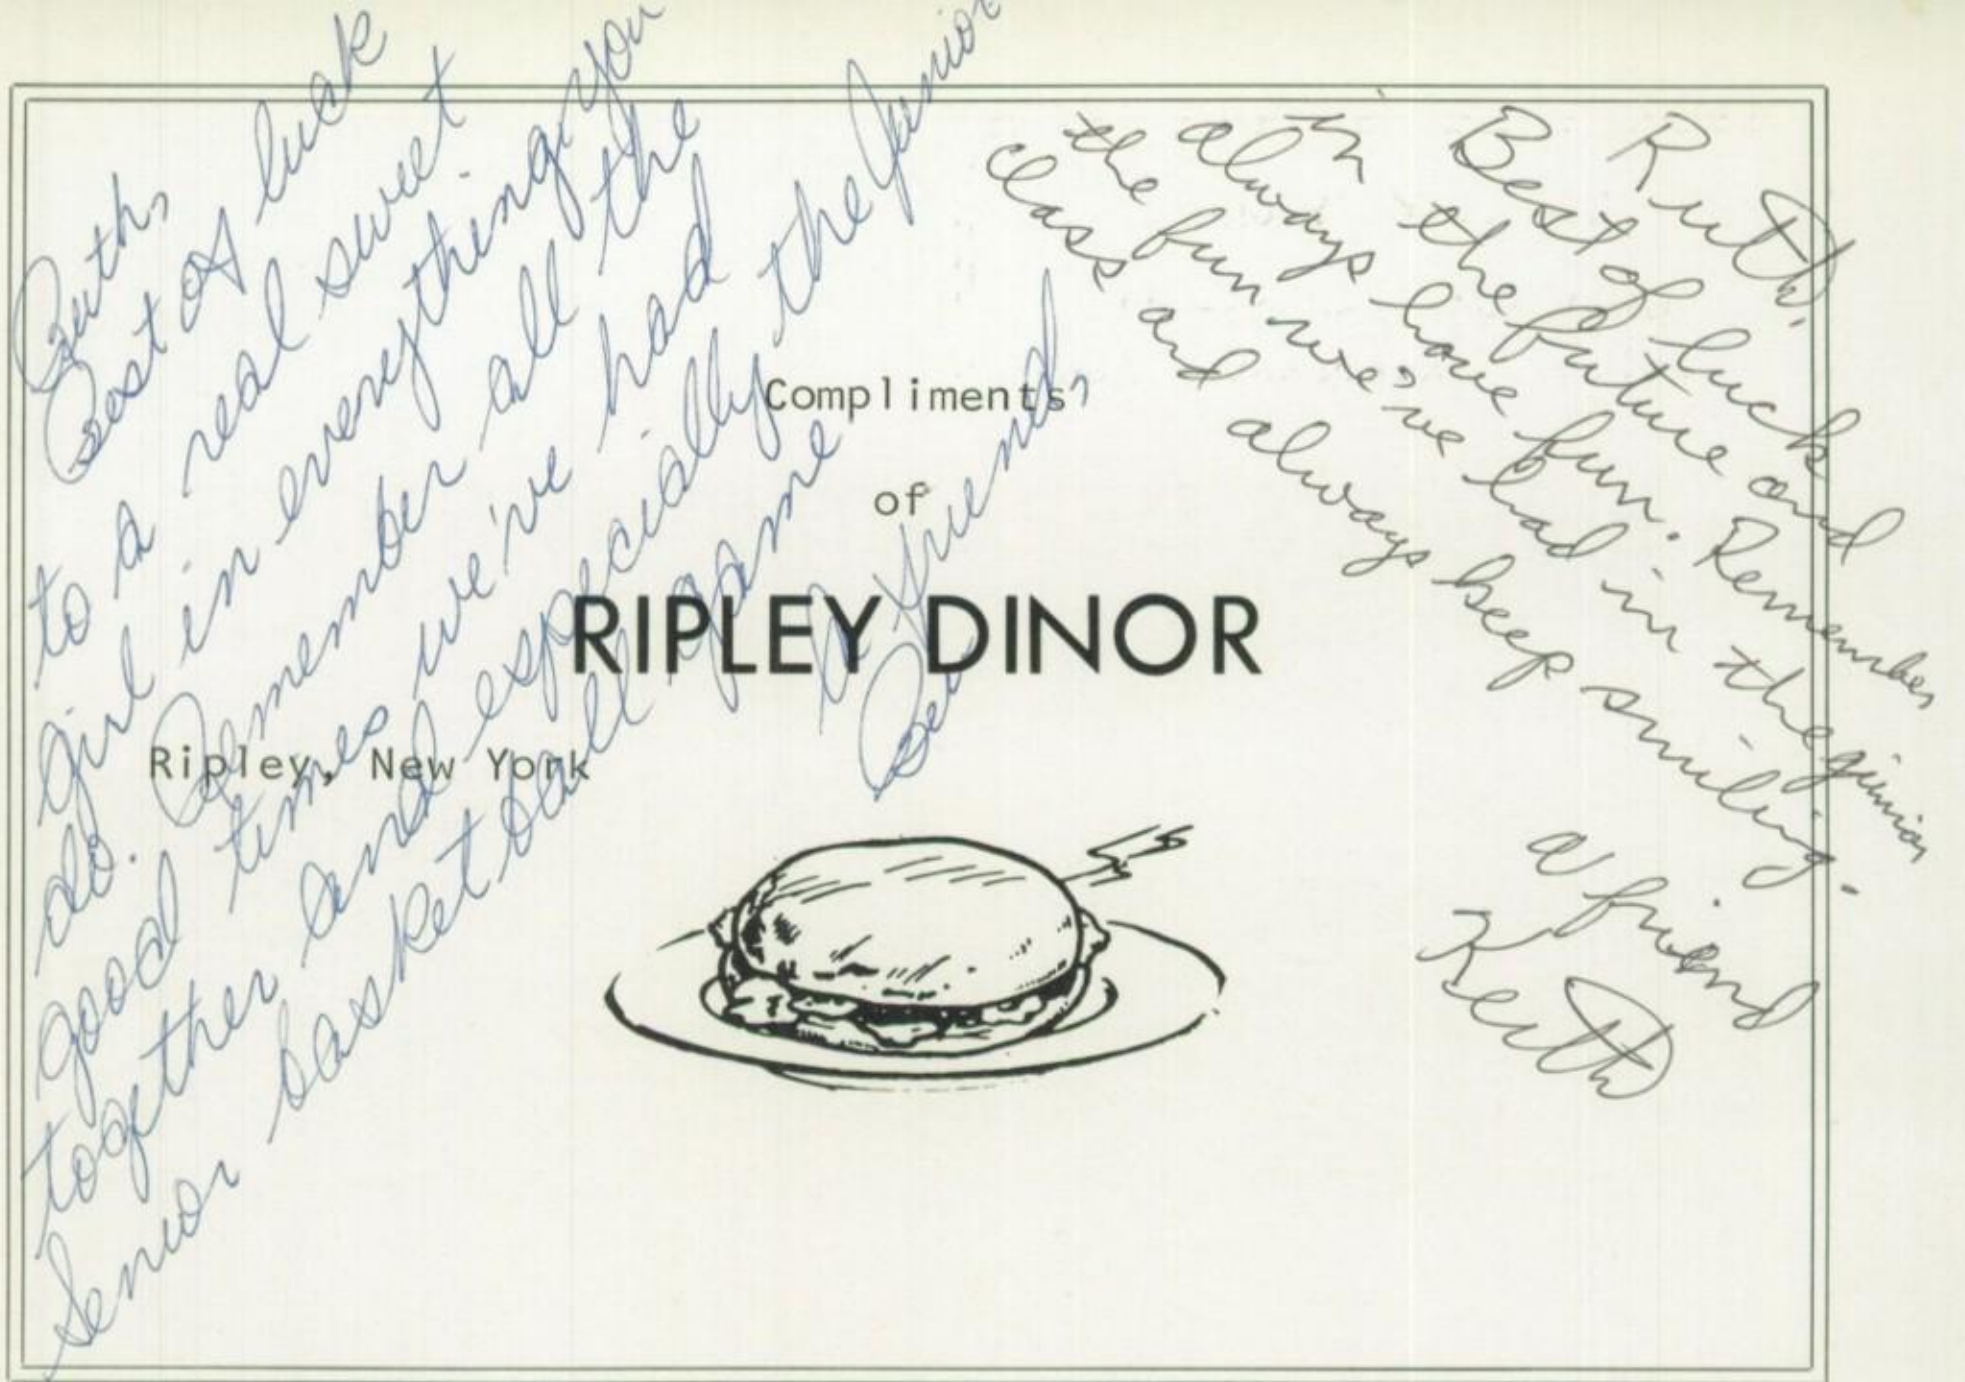 Ruth,
Best of luck
to a real sweet
girl in everything you
do. Remember all the
good times we've had
together and especially the Junior
Senior basketball game
A friend,
Compliments
of
RIPLEY DINOR
Ripley, New York
Ruth,
Best of luck
in the future and
always have fun. Remember
the fun we've had in the junior
class and always keep smiling.
a friend
Keith